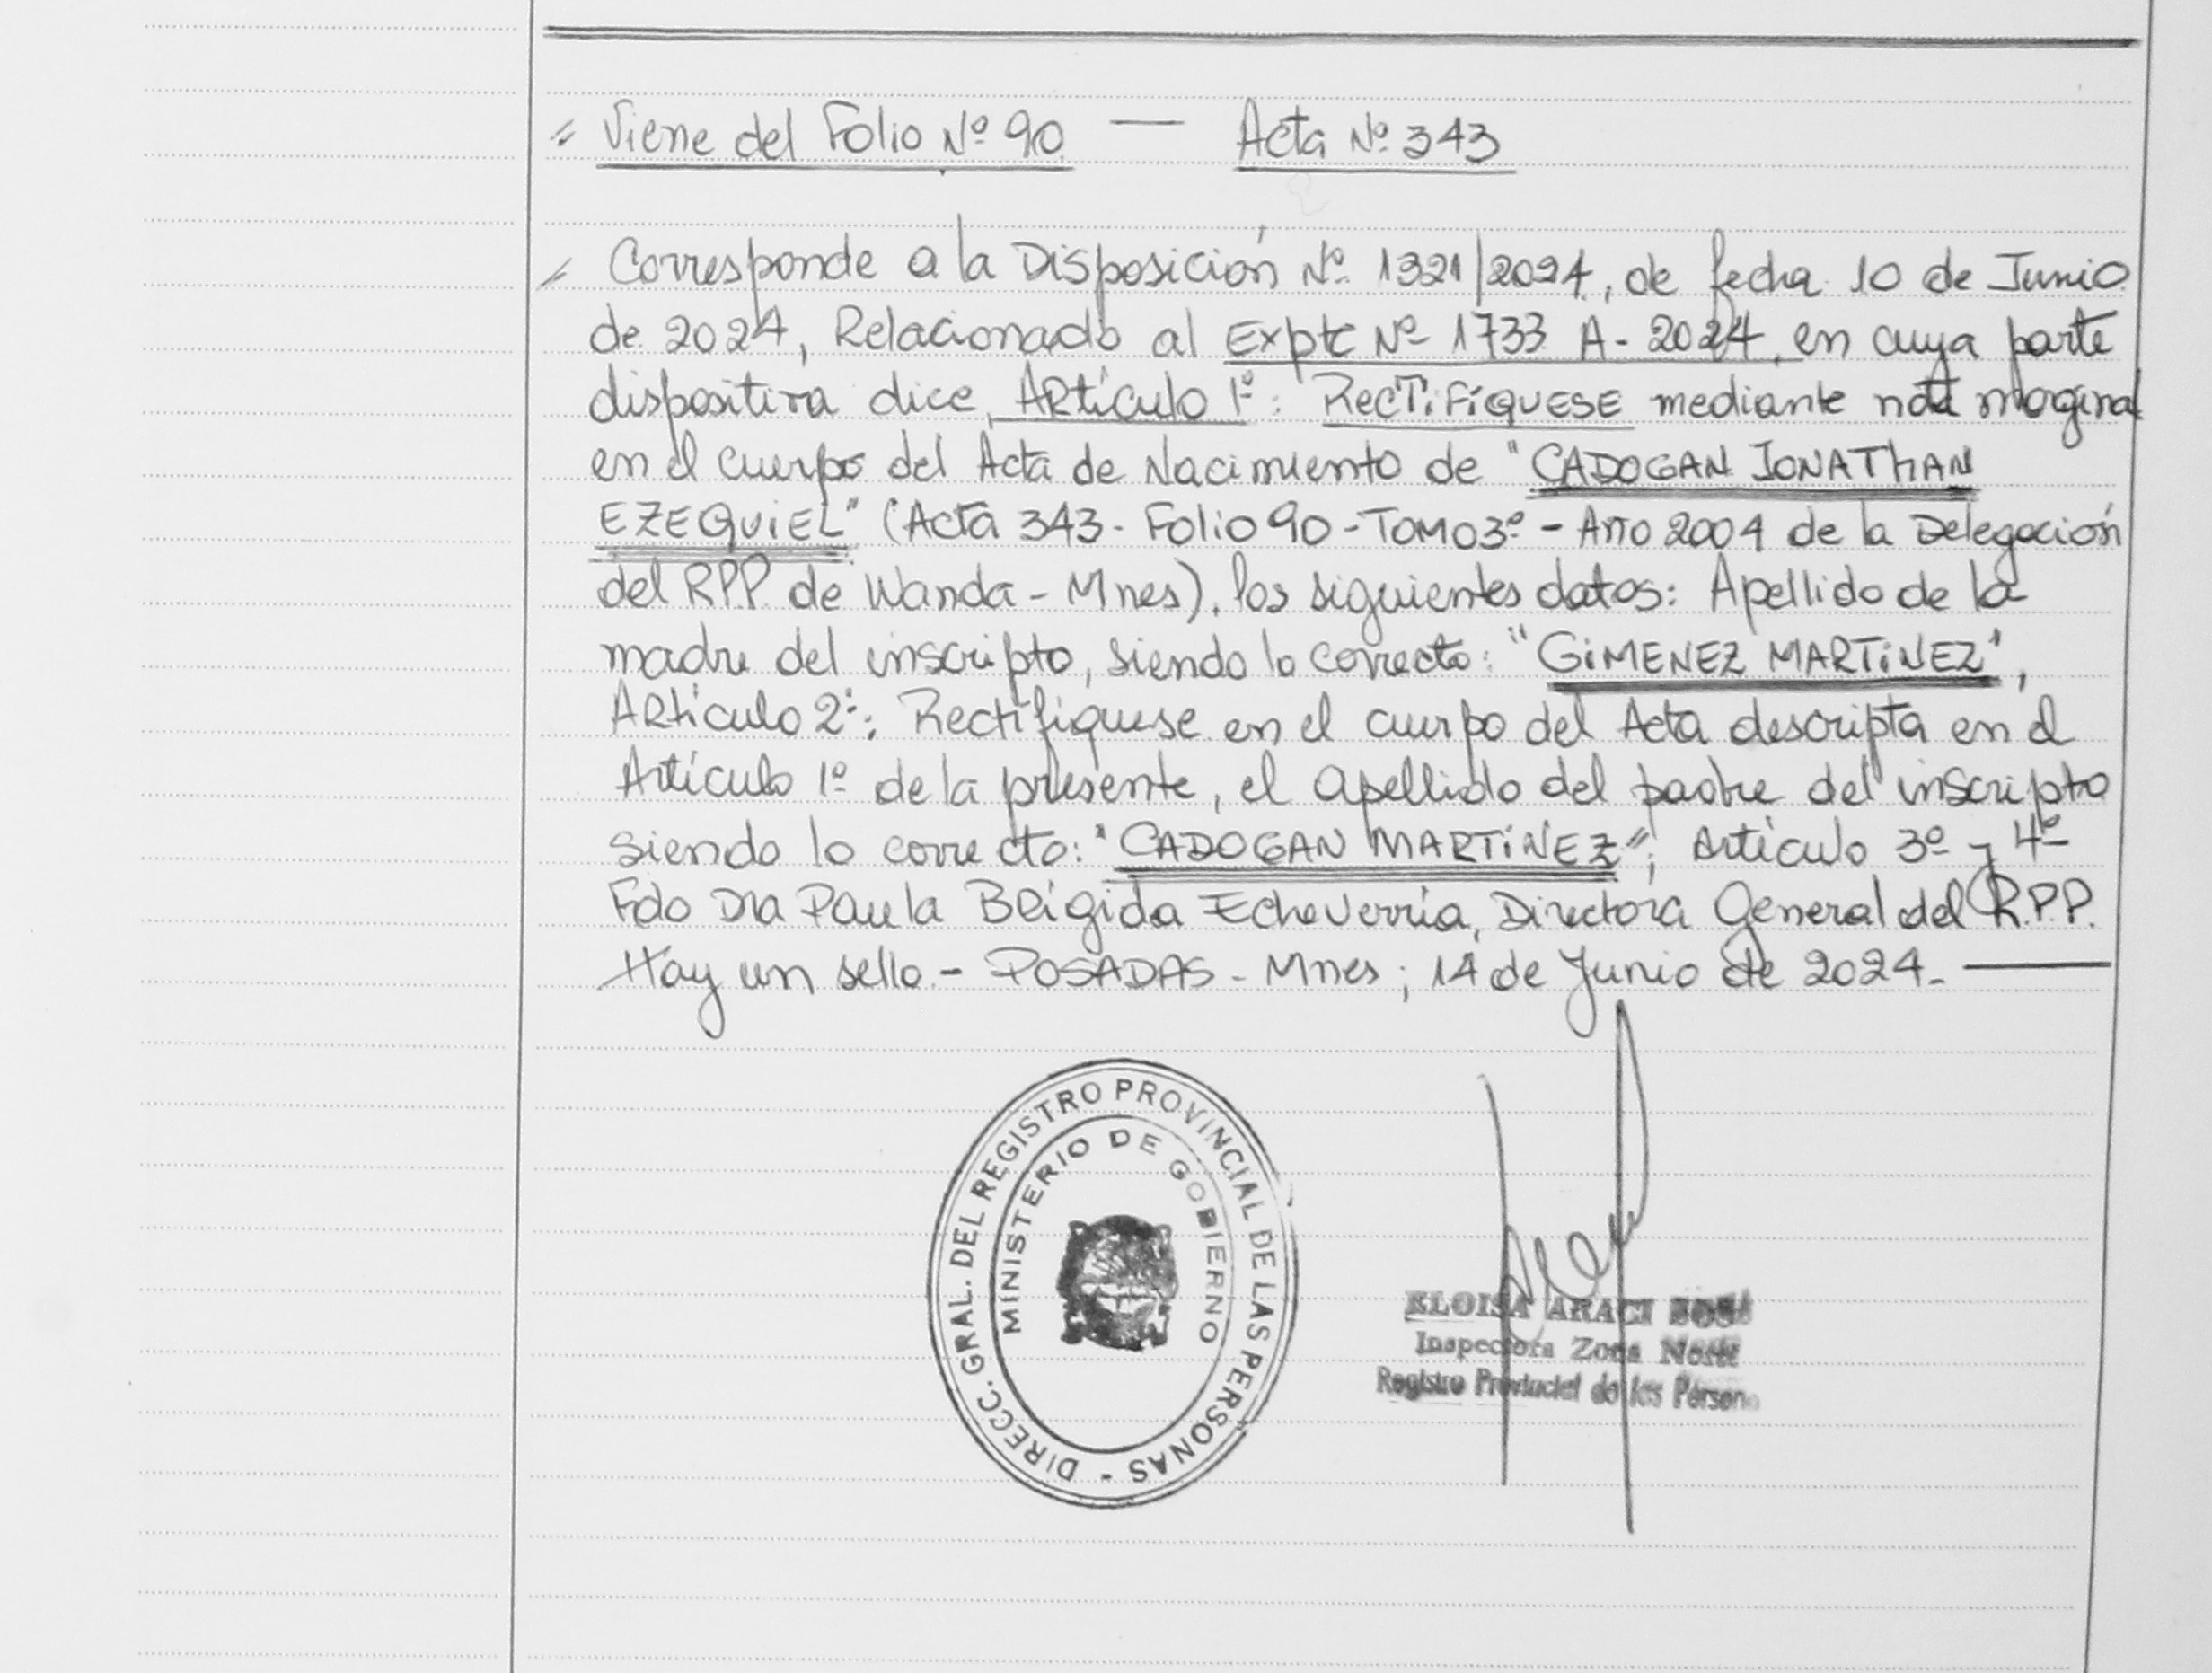 = Viene del Folio Nº 90 — Acta Nº 343
Corresponde a la Disposición Nº 1321/2024, de fecha 10 de Junio
de 2024, Relacionado al Expte Nº 1733 A - 2024, en cuya parte
dispositiva dice, Artículo 1º: RECTIFÍQUESE mediante nota marginal
en el cuerpo del Acta de Nacimiento de "CADOGAN JONATHAN
EZEQUIEL" (Acta 343 - Folio 90 - TOMO 3º - Año 2004 de la Delegación
del R.P.P. de Wanda - Mnes), los siguientes datos: Apellido de la
madre del inscripto, siendo lo correcto: "GIMENEZ MARTINEZ",
Artículo 2º: Rectifíquese en el cuerpo del Acta descripta en el
Artículo 1º de la presente, el apellido del padre del inscripto
siendo lo correcto: "CADOGAN MARTÍNEZ"; Artículo 3º y 4º
Fdo Dra Paula Brígida Echeverría, Directora General del R.P.P.
Hay un sello. - POSADAS - Mnes; 14 de Junio de 2024. —
DIRECC. GRAL. DEL REGISTRO PROVINCIAL DE LAS PERSONAS -
MINISTERIO DE GOBIERNO
ELOISA ARACI
Inspectora Zona Norte
Registro Provincial de las Persona